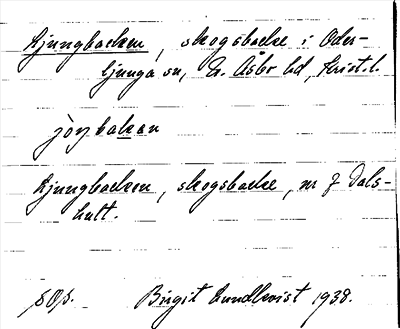 Ljungbacken, skogsbacke i Oder-
ljunga sn, N. Åsbo hd, Krist. l.
jöŋbakan
Ljungbacken, skogsbacke, nv f Dals-
hult.
sOs. Birgit Lundkvist 1938.